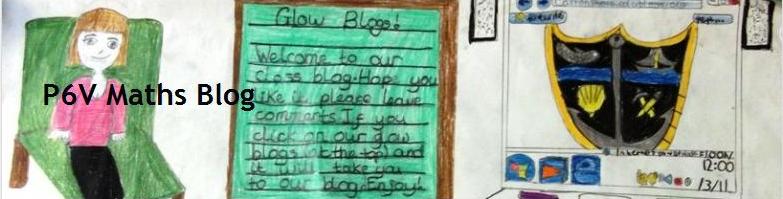 P6V Maths Blog
Glow Blogs!
Welcome to our
class blog. Hope you
like it. please leave
comments. If you
click on our glow
blogs (at the top) and
it will take you
to our blog. Enjoy!
12:00